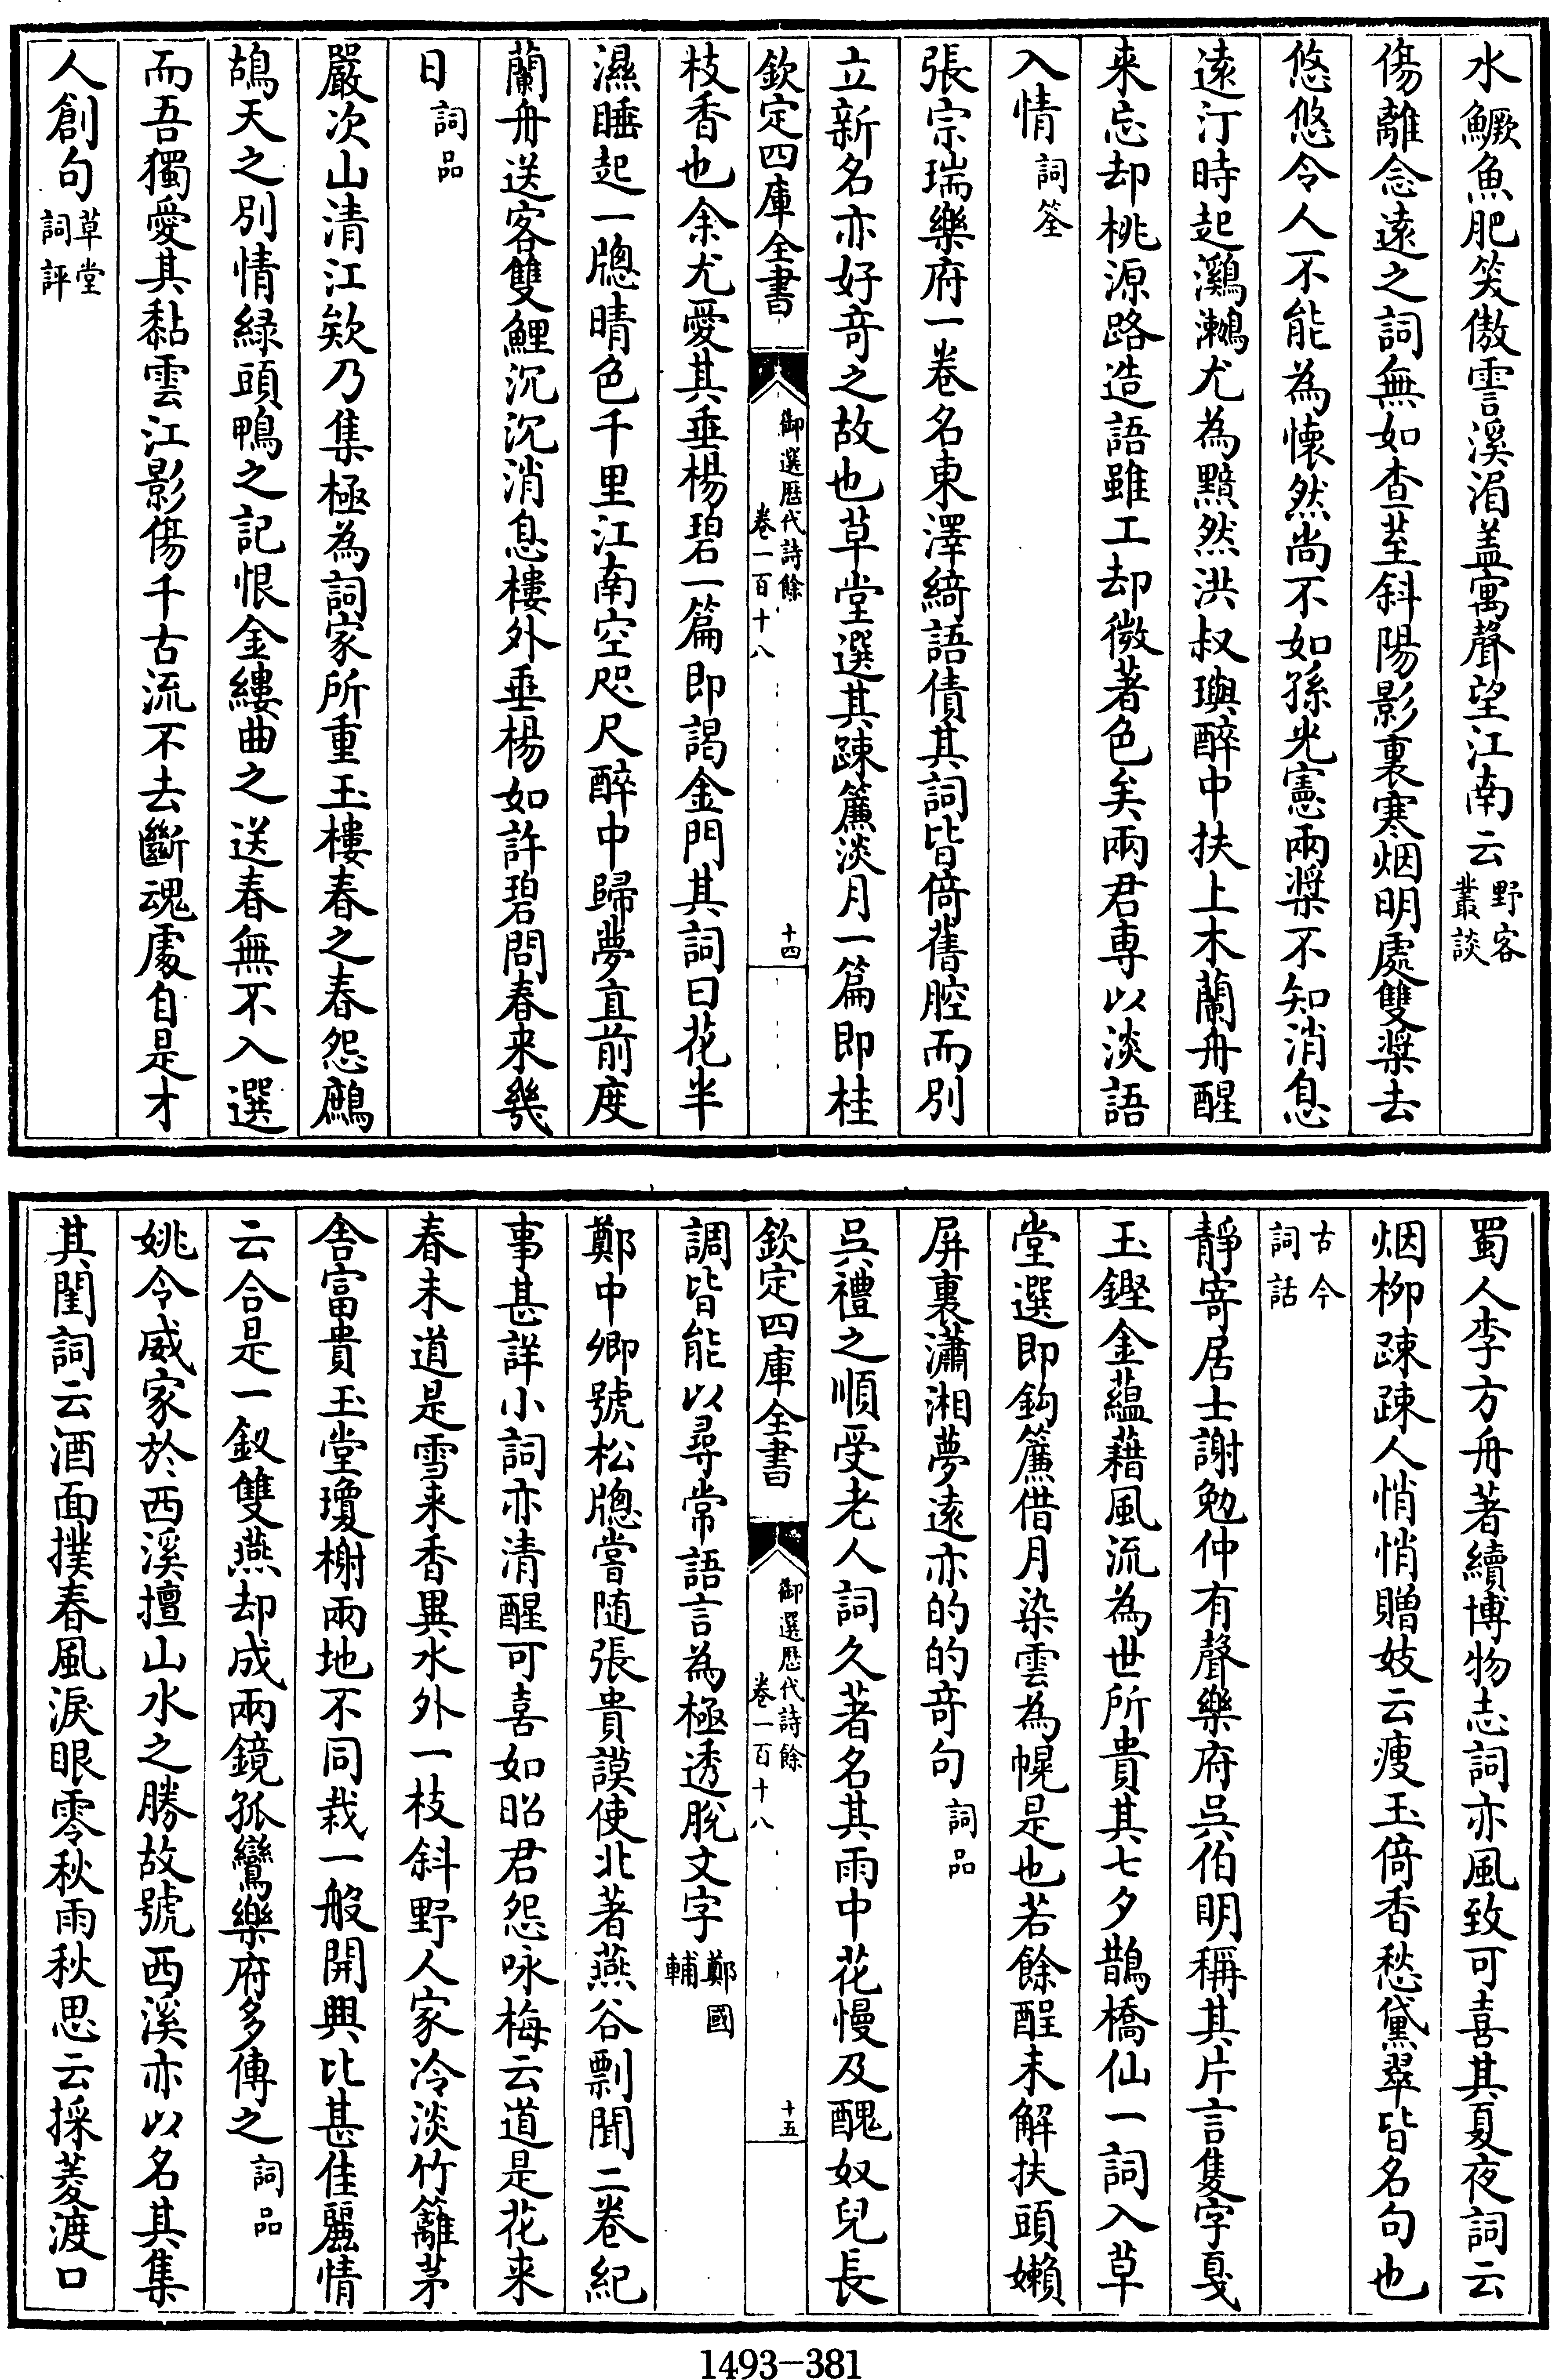 水鱖魚肥笑傲霅溪湄蓋寓聲望江南云野客叢談
傷離念遠之詞無如查荎斜陽影裏寒烟明處雙槳去
悠悠令人不能為懷然尚不如孫光憲兩槳不知消息
遠汀時起鸂鷘尤為黯然洪叔璵醉中扶上木蘭舟醒
来忘却桃源路造語雖工却微著色矣兩君専以淡語
入情詞筌
張宗瑞樂府一卷名東澤綺語債其詞皆倚舊腔而別
立新名亦好竒之故也草堂選其踈簾淡月一篇即桂
欽定四庫全書
御選歷代詩餘
卷一百十八
十四
枝香也余尤愛其垂楊碧一篇即謁金門其詞曰花半
濕睡起一牕晴色千里江南空咫尺醉中歸夢直前度
蘭舟送客雙鯉沉沉消息樓外垂楊如許碧問春来幾
日詞品
嚴次山清江欸乃集極為詞家所重玉樓春之春怨鷓
鴣天之別情綠頭鴨之記恨金縷曲之送春無不入選
而吾獨愛其黏雲江影傷千古流不去斷魂處自是才
人創句草堂詞評
蜀人李方舟著續博物志詞亦風致可喜其夏夜詞云
烟柳踈踈人悄悄贈妓云瘦玉倚香愁黛翠皆名句也
古今詞話
靜寄居士謝勉仲有聲樂府吳伯明稱其片言隻字戛
玉鏗金蘊藉風流為世所貴其七夕鵲橋仙一詞入草
堂選即鈎簾借月染雲為幌是也若餘酲未解扶頭嬾
屏裏瀟湘夢遠亦的的竒句詞品
吳禮之順受老人詞久著名其雨中花慢及醜奴兒長
欽定四庫全書
御選歷代詩餘
卷一百十八
十五
調皆能以尋常語言為極透脫文字鄭國輔
鄭中卿號松牕嘗随張貴謨使北著燕谷剽聞二卷紀
事甚詳小詞亦清醒可喜如昭君怨咏梅云道是花来
春未道是雪来香異水外一枝斜野人家冷淡竹籬茅
舎富貴玉堂瓊榭兩地不同栽一般開興比甚佳麗情
云合是一釵雙燕却成兩鏡孤鸞樂府多傳之詞品
姚令威家於西溪擅山水之勝故號西溪亦以名其集
其閨詞云酒面撲春風淚眼零秋雨秋思云採菱渡口
1493—381